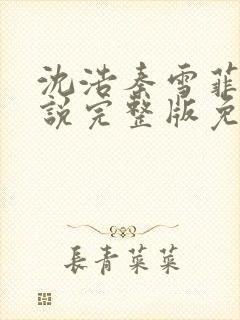 沈浩秦雪菲
說完整版免
長青菜菜